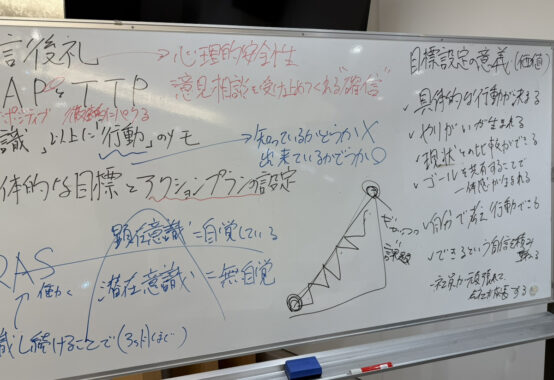 言後礼 → 心理的安全性
AP & TTP 意見相談を受け止めてくれる"確信"
ポジティブ 徹底的にパクる
識」以上に「行動」のメモ
知っているかどうか X
出来ているかどうか ○
体的な目標とアクションプランの設定
顕在意識 = 自覚している
RAS 潜在意識 = 無自覚
↑働く
識し続けることで
ギャップ
課題
目標設定の意義(価値)
✓具体的な行動が決まる
✓やりがいが生まれる
✓現状との比較ができる
✓ゴールを共有することで
一体感が生まれる
✓自分で 行動できる
✓できるという自信を
社員が頑張れて
する